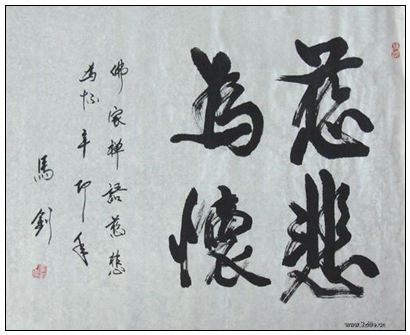 慈悲
為懷
佛家禅語慈悲
為懷辛卯年
馬釗